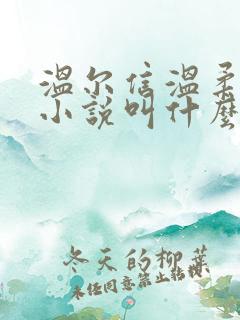 温尔信温柔
小说叫什麽
冬天的柳葉
未经同意禁止转载